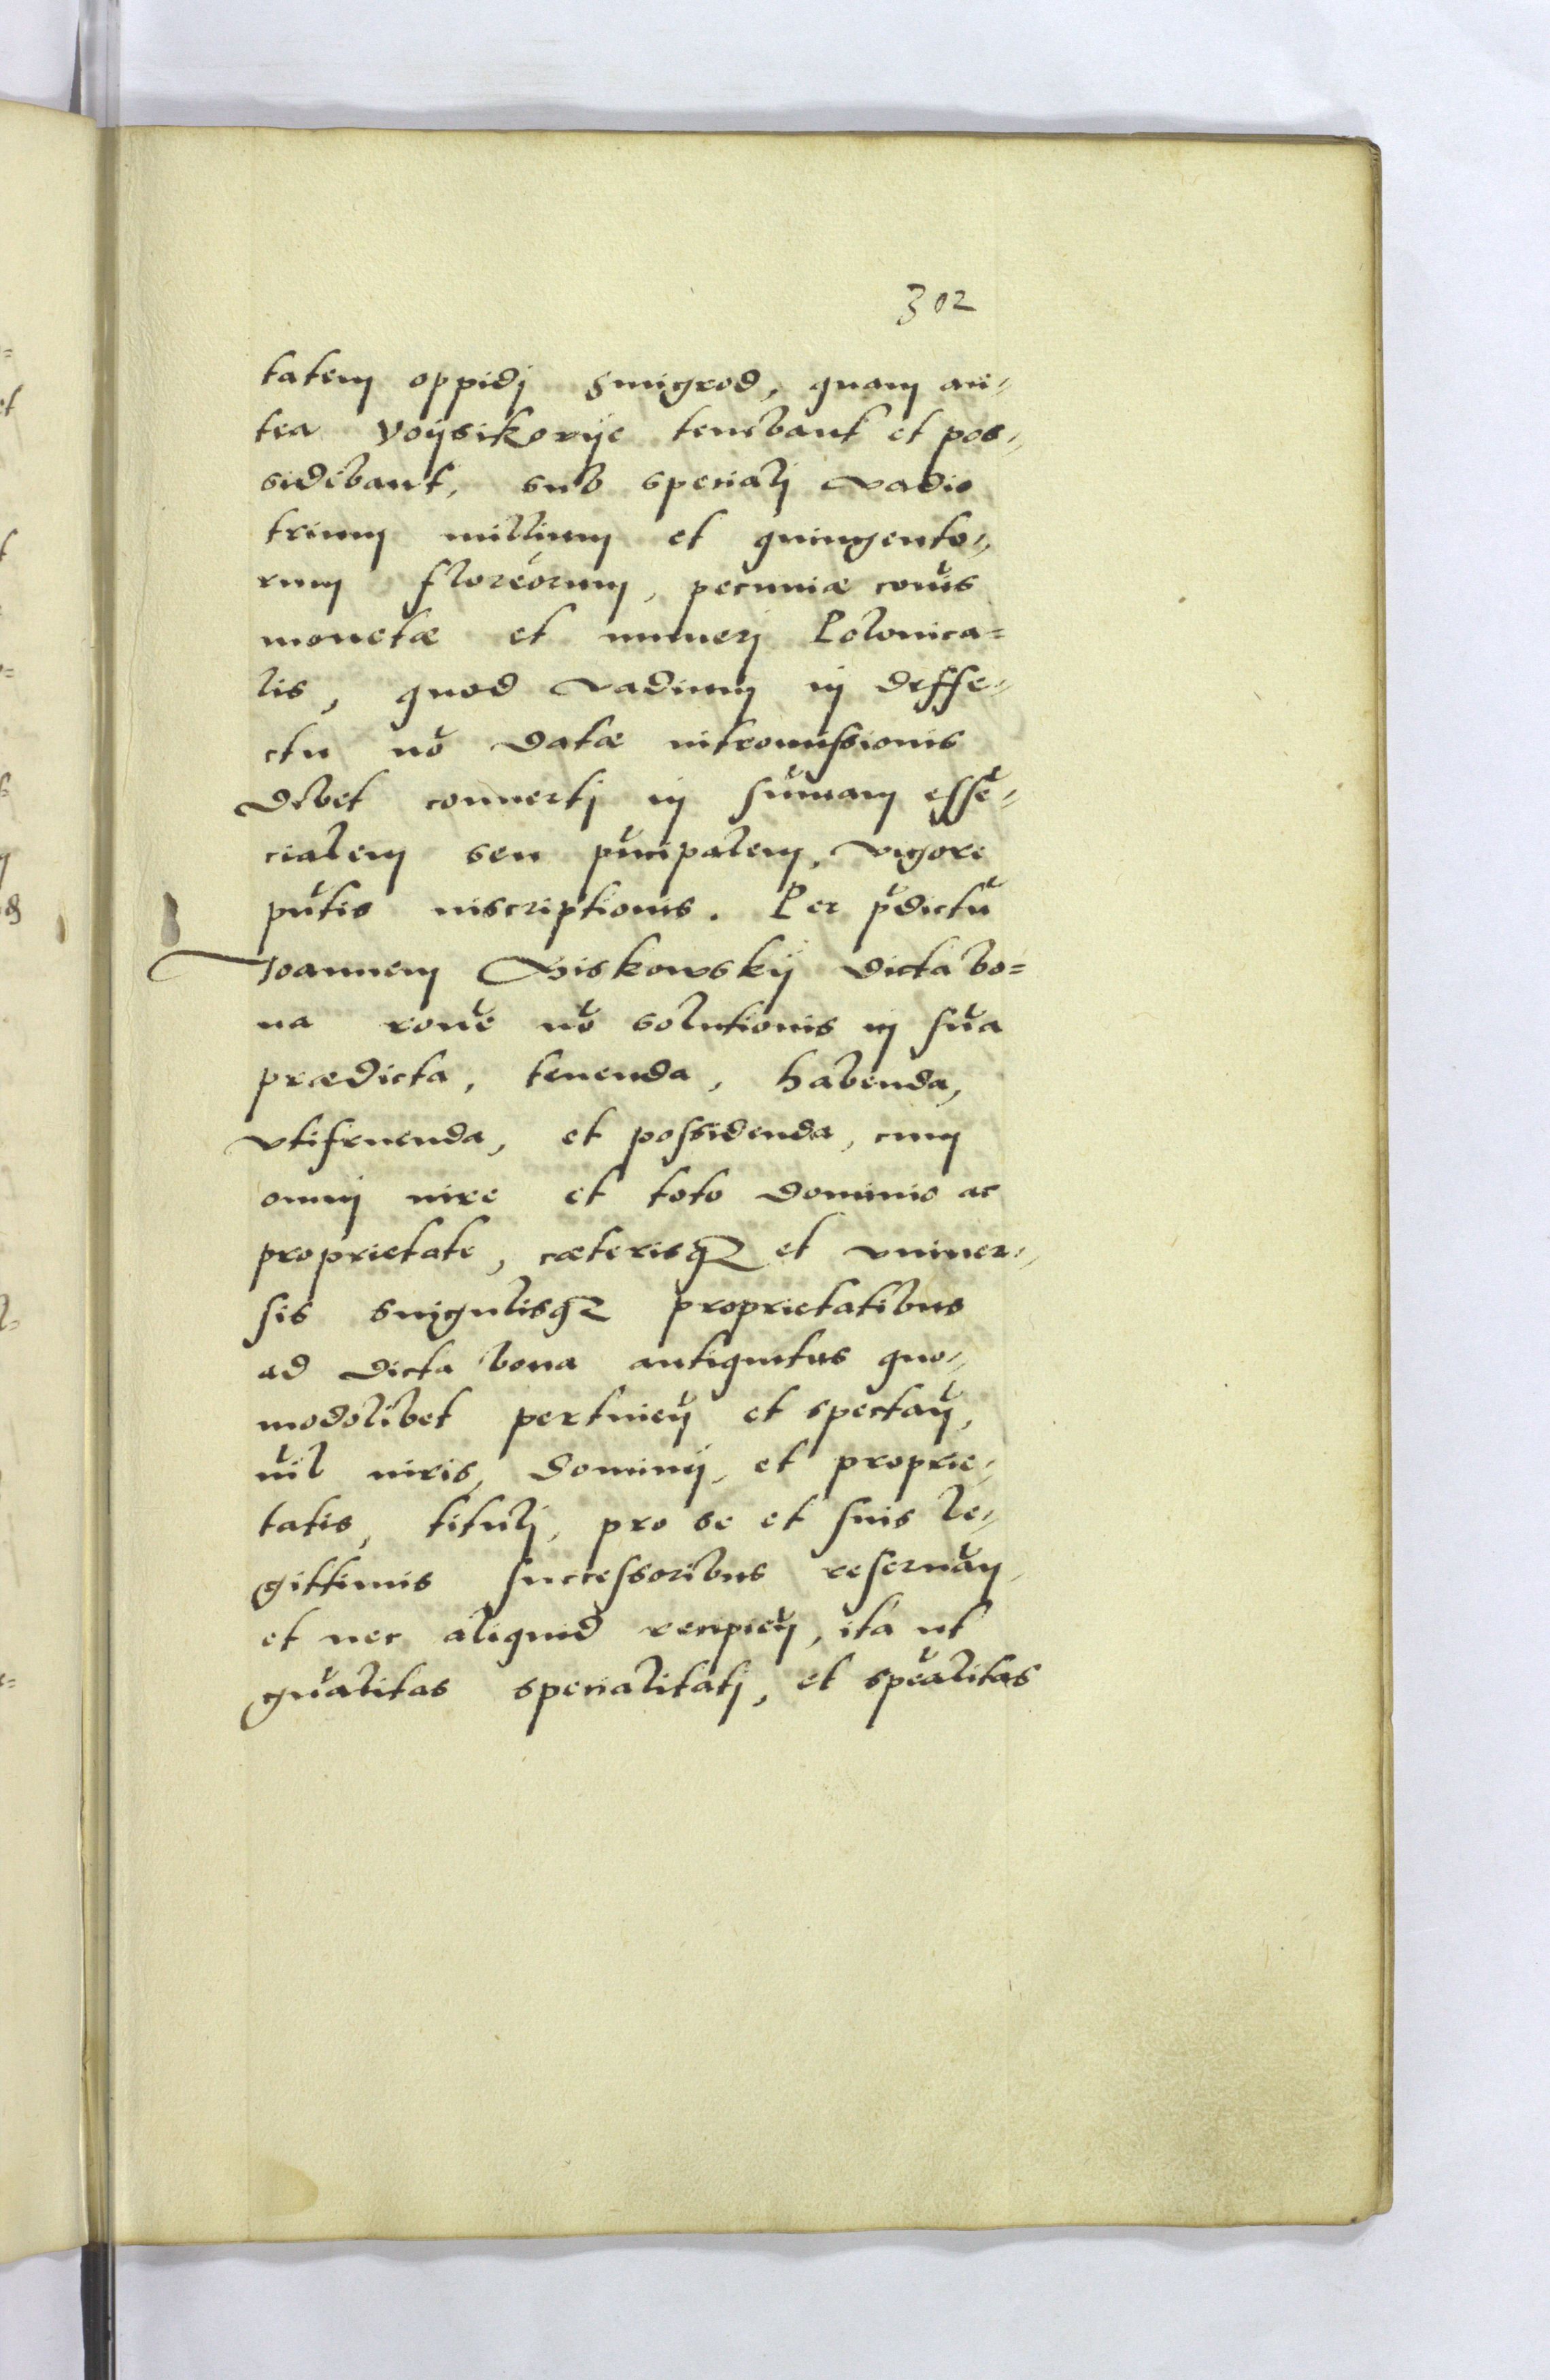 302
tatem oppidj Smigrod, quam an⸗
tea Voijsikovije tenebant et pos⸗
sidebant, sub specialj vadio
trium millium et quingento⸗
rum florĕorum, pecuniæ cŏuis
monetæ et numerj Polonica⸗
lis, quod vadium in deffe⸗
ctu nŏ datæ intromissionis
debet conuertj in sŭmam essĕ⸗
cialem seu pŭcipalem, vigore
pŭtis inscriptionis. Per p̆dictŭ
Joannem Siskowskij dicta bo⸗
na rŏne nŏ solutionis in sŭa
prædicta, tenenda, habenda,
vtifruenda, et possidenda, cum
omnj iure et toto dominio ac
proprietate, cæterisqʒ et vniuer⸗
sis singulisqʒ proprietatibus
ad dicta bona antiquitus quo⸗
modolibet pertineñ et spectañ,
nĭl iuris, dominij, et proprie⸗
tatis, titulj, pro se et suis le⸗
gittimis successoribus reseruañ
et nec aliquid recipieñ, ita ut
gn̆alitas specialitatj, et spĕalitas